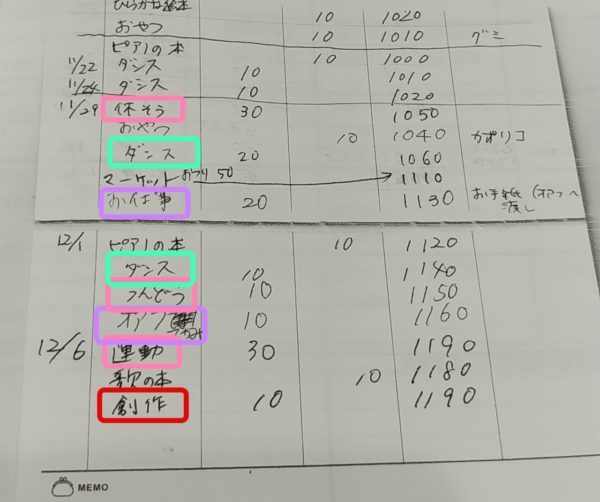 ひらがな絵本 10 1020
おやつ 10 1010 グミ
ピアノの本 10 1000
11/22 ダンス 10 1010
11/24 ダンス 10 1020
11/29 体そう 30 1050
おやつ 10 1040 カプリコ
ダンス 20 1060
マーケットおつり 50 → 1110
お仕事 20 1130 お手紙(オアフへ
渡し
12/1 ピアノの本 10 1120
ダンス 10 1140
うんどう 10 1150
10 1160
12/6 運動 30 1190
歌の本 10 1180
創作 10 1190
MEMO